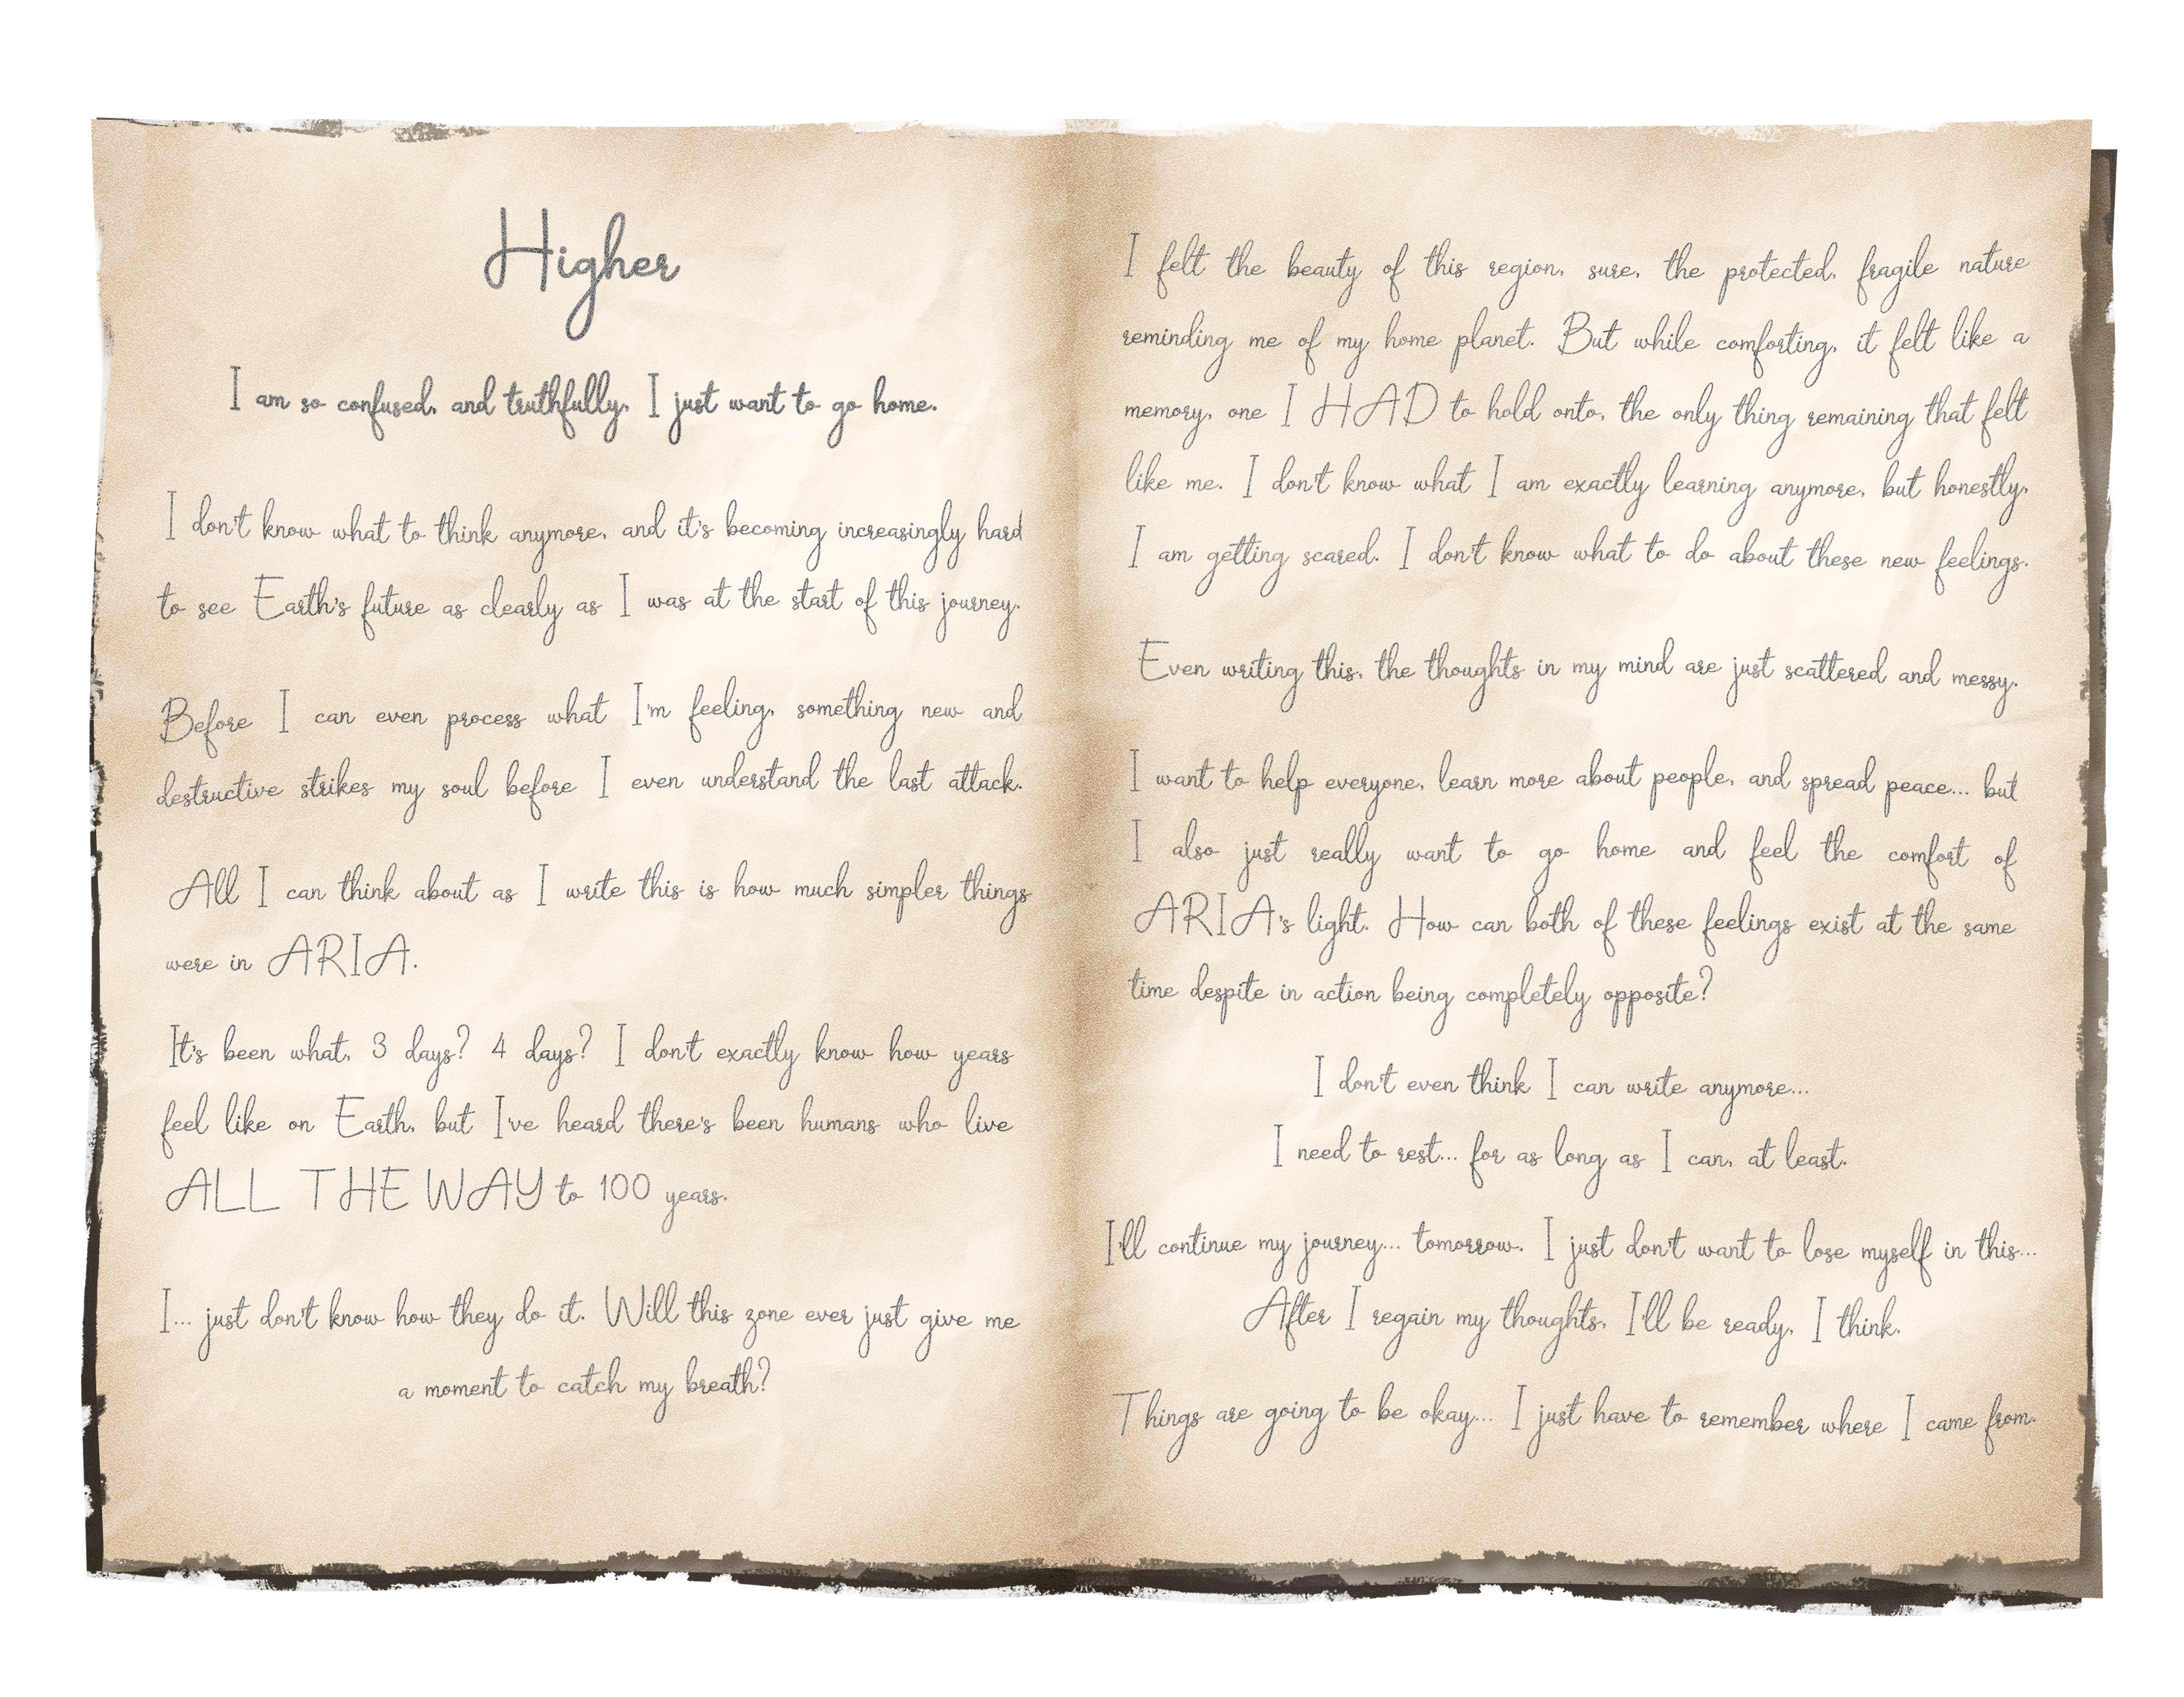 Higher
I am so confused, and truthfully, I just want to go home.
I don't know what to think anymore, and it's becoming increasingly hard
to see Earth's future as clearly as I was at the start of this journey.
Before I can even process what I'm feeling, something new and
destructive strikes my soul before I even understand the last attack.
All I can think about as I write this is how much simpler things
were in ARIA.
It's been what, 3 days? 4 days? I don't exactly know how years
feel like on Earth, but I've heard there's been humans who live
ALL THE WAY to 100 years.
I... just don't know how they do it. Will this zone ever just give me
a moment to catch my breath?
I felt the beauty of this region, sure, the protected, fragile nature
reminding me of my home planet. But while comforting, it felt like a
memory, one I HAD to hold onto, the only thing remaining that felt
like me. I don't know what I am exactly learning anymore, but honestly,
I am getting scared. I don't know what to do about these new feelings.
Even writing this, the thoughts in my mind are just scattered and messy.
I want to help everyone, learn more about people, and spread peace... but
I also just really want to go home and feel the comfort of
ARIA's light. How can both of these feelings exist at the same
time despite in action being completely opposite?
I don't even think I can write anymore...
I need to rest... for as long as I can, at least.
I'll continue my journey... tomorrow. I just don't want to lose myself in this...
After I regain my thoughts, I'll be ready, I think.
Things are going to be okay... I just have to remember where I came from.